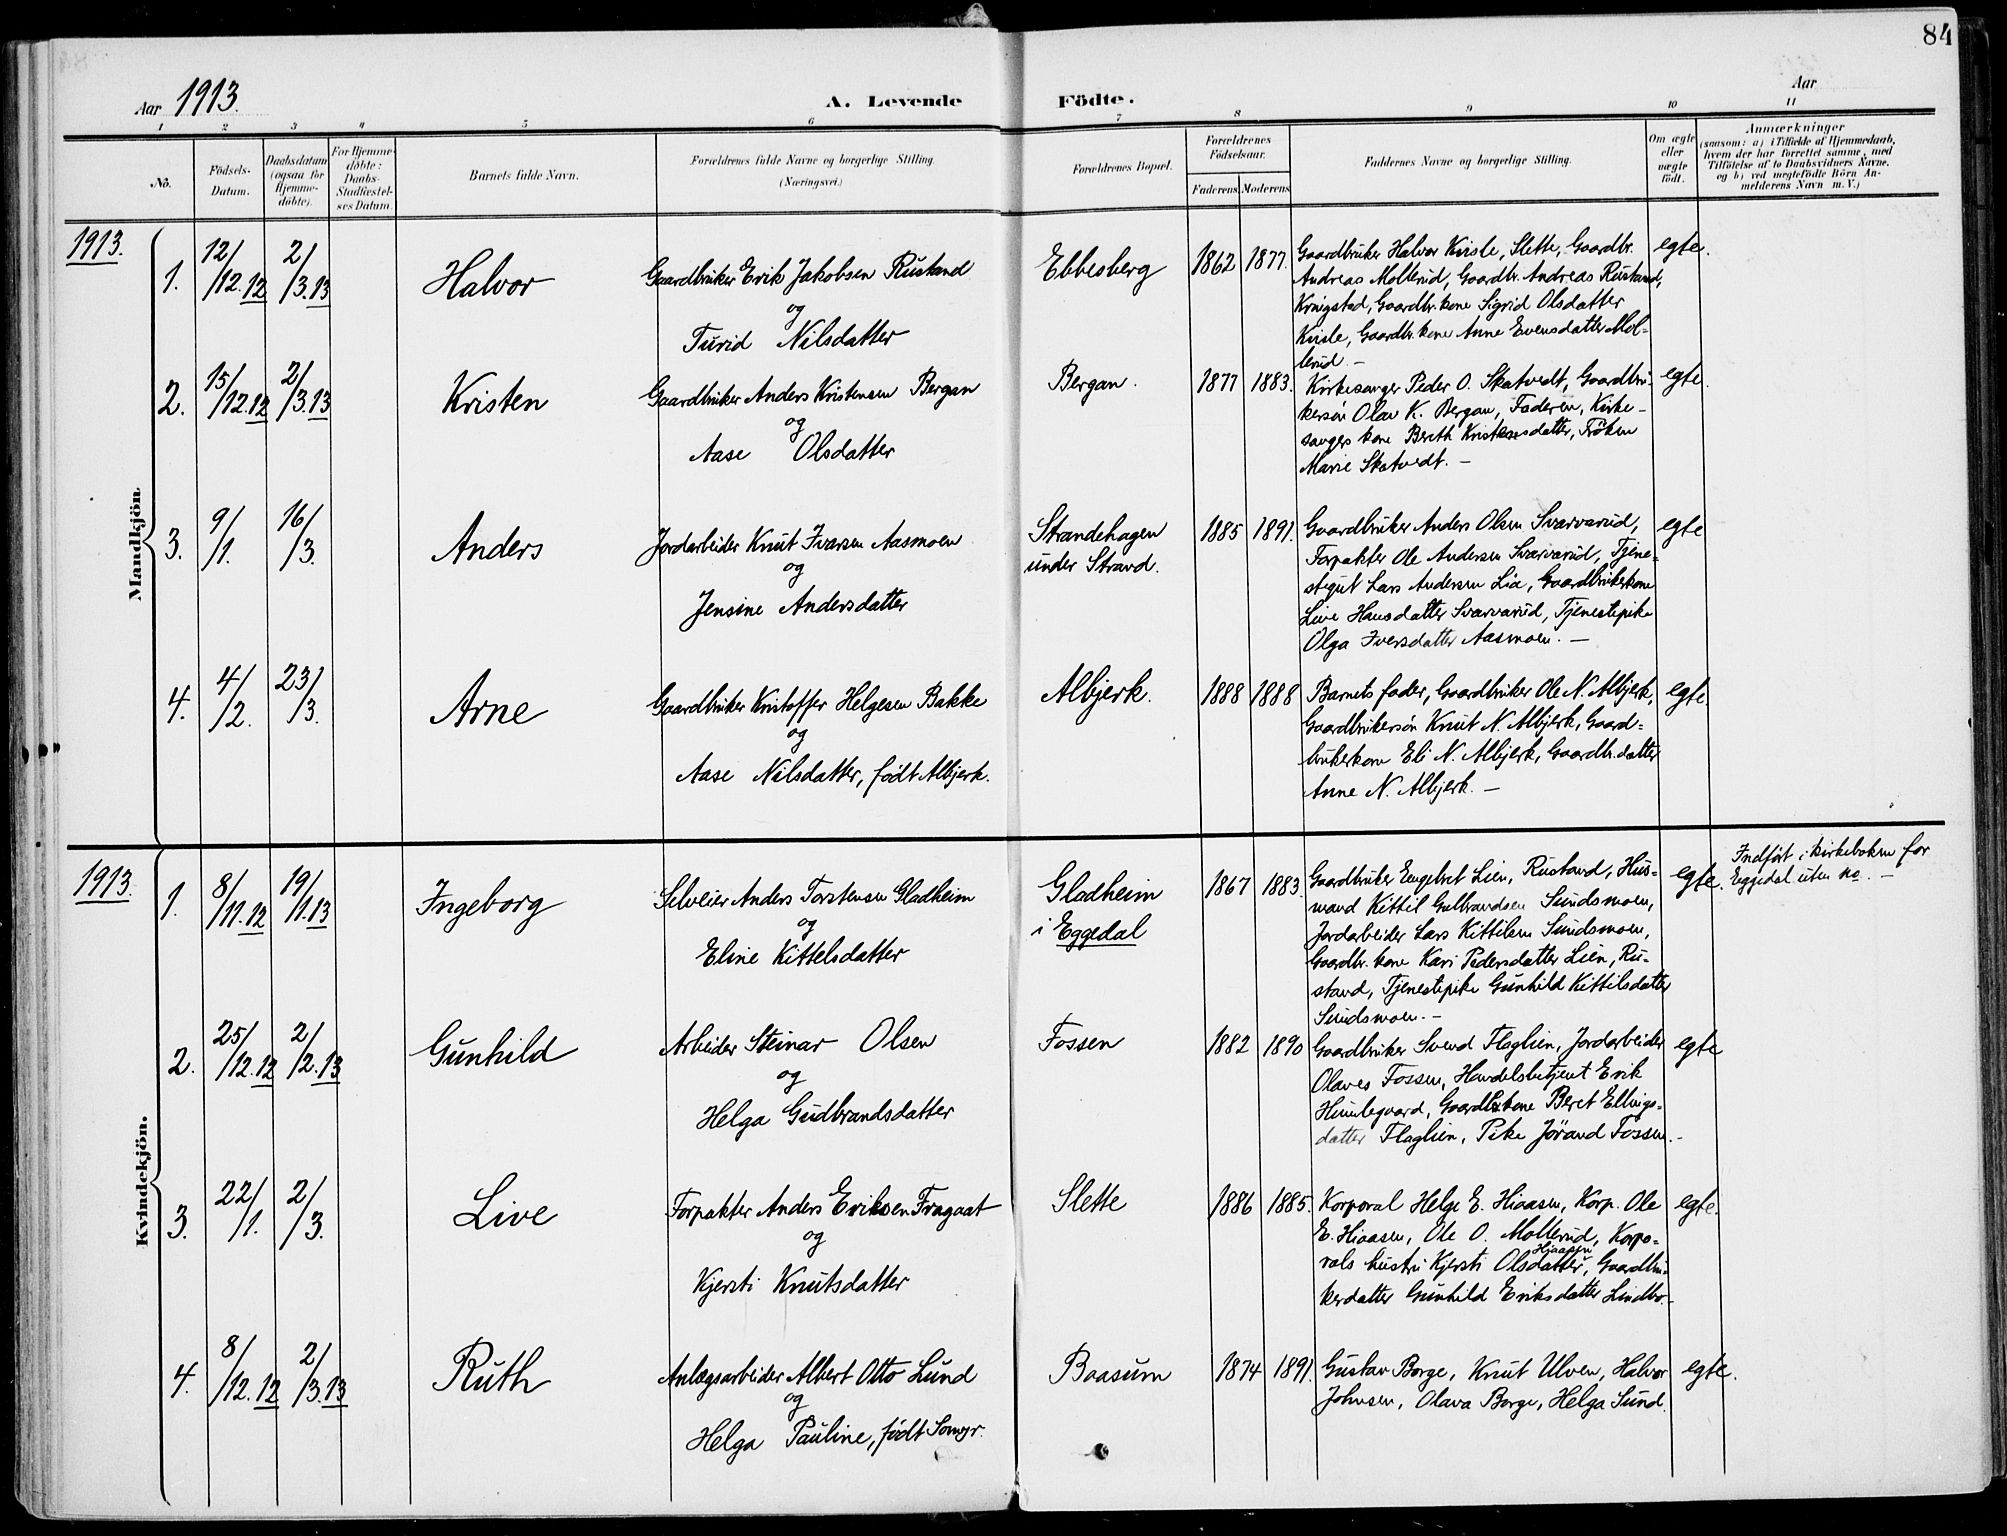 84
Aar 1913.
A. Levende Fødte.
Aar
1 2 3 4 5 6 7 8 9 10 11
No.
Födsels-
Datum.
Daabsdatum
(ogsaa for
Hjemme-
döbte).
For Hjemme-
döbte:
Daabs-
Stadfæstel-
ses Datum.
Barnets fulde Navn.
Forældrenes fulde Navne og borgerlige Stilling.
(Næringsvei.)
Forældrenes Bopæl.
Forældrenes
Födselsaar.
Faderens Moderens
Faddernes Navne og borgerlige Stilling.
Om ægte
eller
uægte
født.
Anmærkninger
(saasom: a) i Tilfælde af Hjemmedaab,
hvem der har forrettet samme, med
Tilföielse af to Daabsvidners Navne.
og b) ved uægtefödte Börn An-
melderens Navn m. V.)
Mandkjön
1913.
1.
12/12.12
2/3.13
Halvor
Gaardbruker Erik Jakobsen Rustand
og
Turid Nilsdatter
Ebbesberg
1862
1877.
Gaardbruker Halvor Kirsle, Slette, Gaardbr.
Andreas Mollerud, Gaardbr. Andreas Rustand,
Gaardbr.kone Sigrid Olsdatter
Gaardbr.kone Anne Evensdatter Mol-
lerud. -
egte.
2.
15/12.12
2/3.13
Kristen
Gaardbruker Anders Kristensen Bergan
og
Aase Olsdatter
Bergan.
1877
1883.
Kirkesanger Peder O. Skatvedt, Gaardbru-
kersön Olav K. Bergan, Faderen, Kirke-
sangers kone Bereth Kristensdatter, Fröken
Marie Skatvedt. -
egte.
3.
9/1.
16/3.
Anders
Jordarbeider Knut Ivarsen Aasmoen
og
Jensine Andersdatter
Strandehagen
under Strand.
1885
1891.
Gaardbruker Anders Olsen Svarvarud,
Forpakter Ole Andersen Svarvarud, Tjene-
stegut Lars Andersen Lia, Gaardbrukerkone
Live Hansdatter Svarvarud, Tjenestepike
Olga Iversdatter Aasmoen. -
egte
4.
4/2.
23/3.
Arne
Gaardbruker Kristoffer Helgesen Bakke
og
Aase Nilsdatter, født Albjerk.
Albjerk.
1888
1888
Barnets fader, Gaardbruker Ole N. Albjerk,
Gaardbrukersön Knut N. Albjerk, Gaard-
brukerkone Eli N. Albjerk, Gaardbr.datter
Anne N. Albjerk. -
egte.
Kvindekjön.
1913.
1.
8/11.12
19/1.13
Ingeborg
Selveier Anders Torstensen Gladheim
og
Eline Kittelsdatter
Gladheim
i Eggedal
1867
1883
Gaardbruker Engebret Lien, Rustand, Hus-
mand Kittil Gulbrandsen Sundsmoen,
Jordarbeider Lars Kittilsen Sundsmoen,
Gaardbr. kone Kari Pedersdatter Lien, Ru-
stand, Tjenestepike Gunhild Kittilsdatter
Sundsmoen. -
egte.
Indført i kirkeboken for
Eggedal uten no. -
2.
25/12.12
2/2.13
Gunhild
Arbeider Steinar Olsen
og
Helga Gudbrandsdatter
Fossen
1882
1890
Gaardbruker Svend Flaglien, Jordarbeider
Olaves Fossen, Handelsbetjent Erik
Humlegaard, Gaardbr.kone Beret Ellings-
datter Flaglien, Pike Jörand Fossen. -
egte
3.
22/1.
2/3.
Live
Forpakter Anders Eriksen Fragaat
og
Kjersti Knutsdatter
Slette
1886
1885.
Korporal Helge E. Hiaasen, Korp. Ole
E. Hiaasen, Ole O. Mollerud, Korpo-
rals hustru Kjersti Olsdatter Hiaasen, Gaardbru-
kerdatter Gunhild Eriksdatter Lindbo. -
egte.
4.
8/12.12
2/3.13
Ruth
Anlægsarbeider Albert Otto Lund
og
Helga Pauline, født
Baasum
1874
1891.
Gustav Borge, Knut Ulven, Halvor
Johnsen, Olava Borge, Helga Sund.
egte.